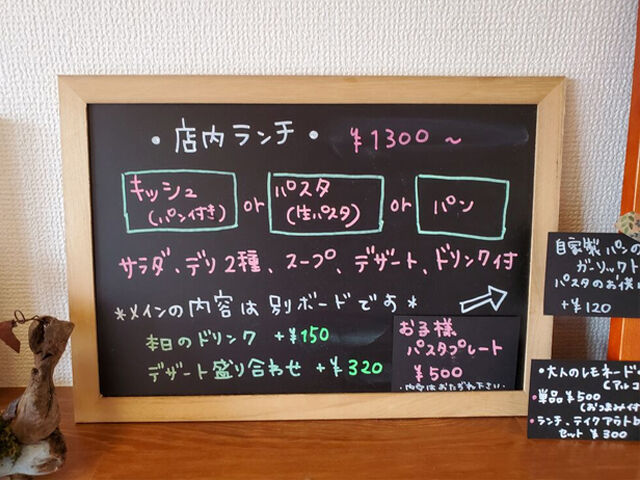 ・店内ランチ・ ¥1300〜
キッシュ
(パン付き)
or
パスタ
(生パスタ)
or
パン
サラダ、デリ2種、スープ、デザート、ドリンク付
*メインの内容は別ボードです*
本日のドリンク +¥150
デザート盛り合わせ +¥320
お子様
パスタプレート
¥500
・内容はおたずね下さい・
自家製パンの
ガーリックト
パスタのお供に
+¥120
・大人のレモネード
(アルコ
・単品¥500
(おつまみ付
・ランチ、テイクアウトも
セット ¥300